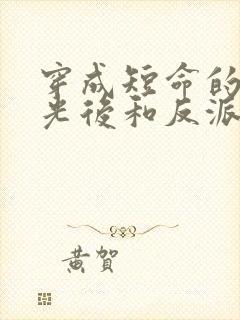 穿成短命的
光後和反派
黄賀